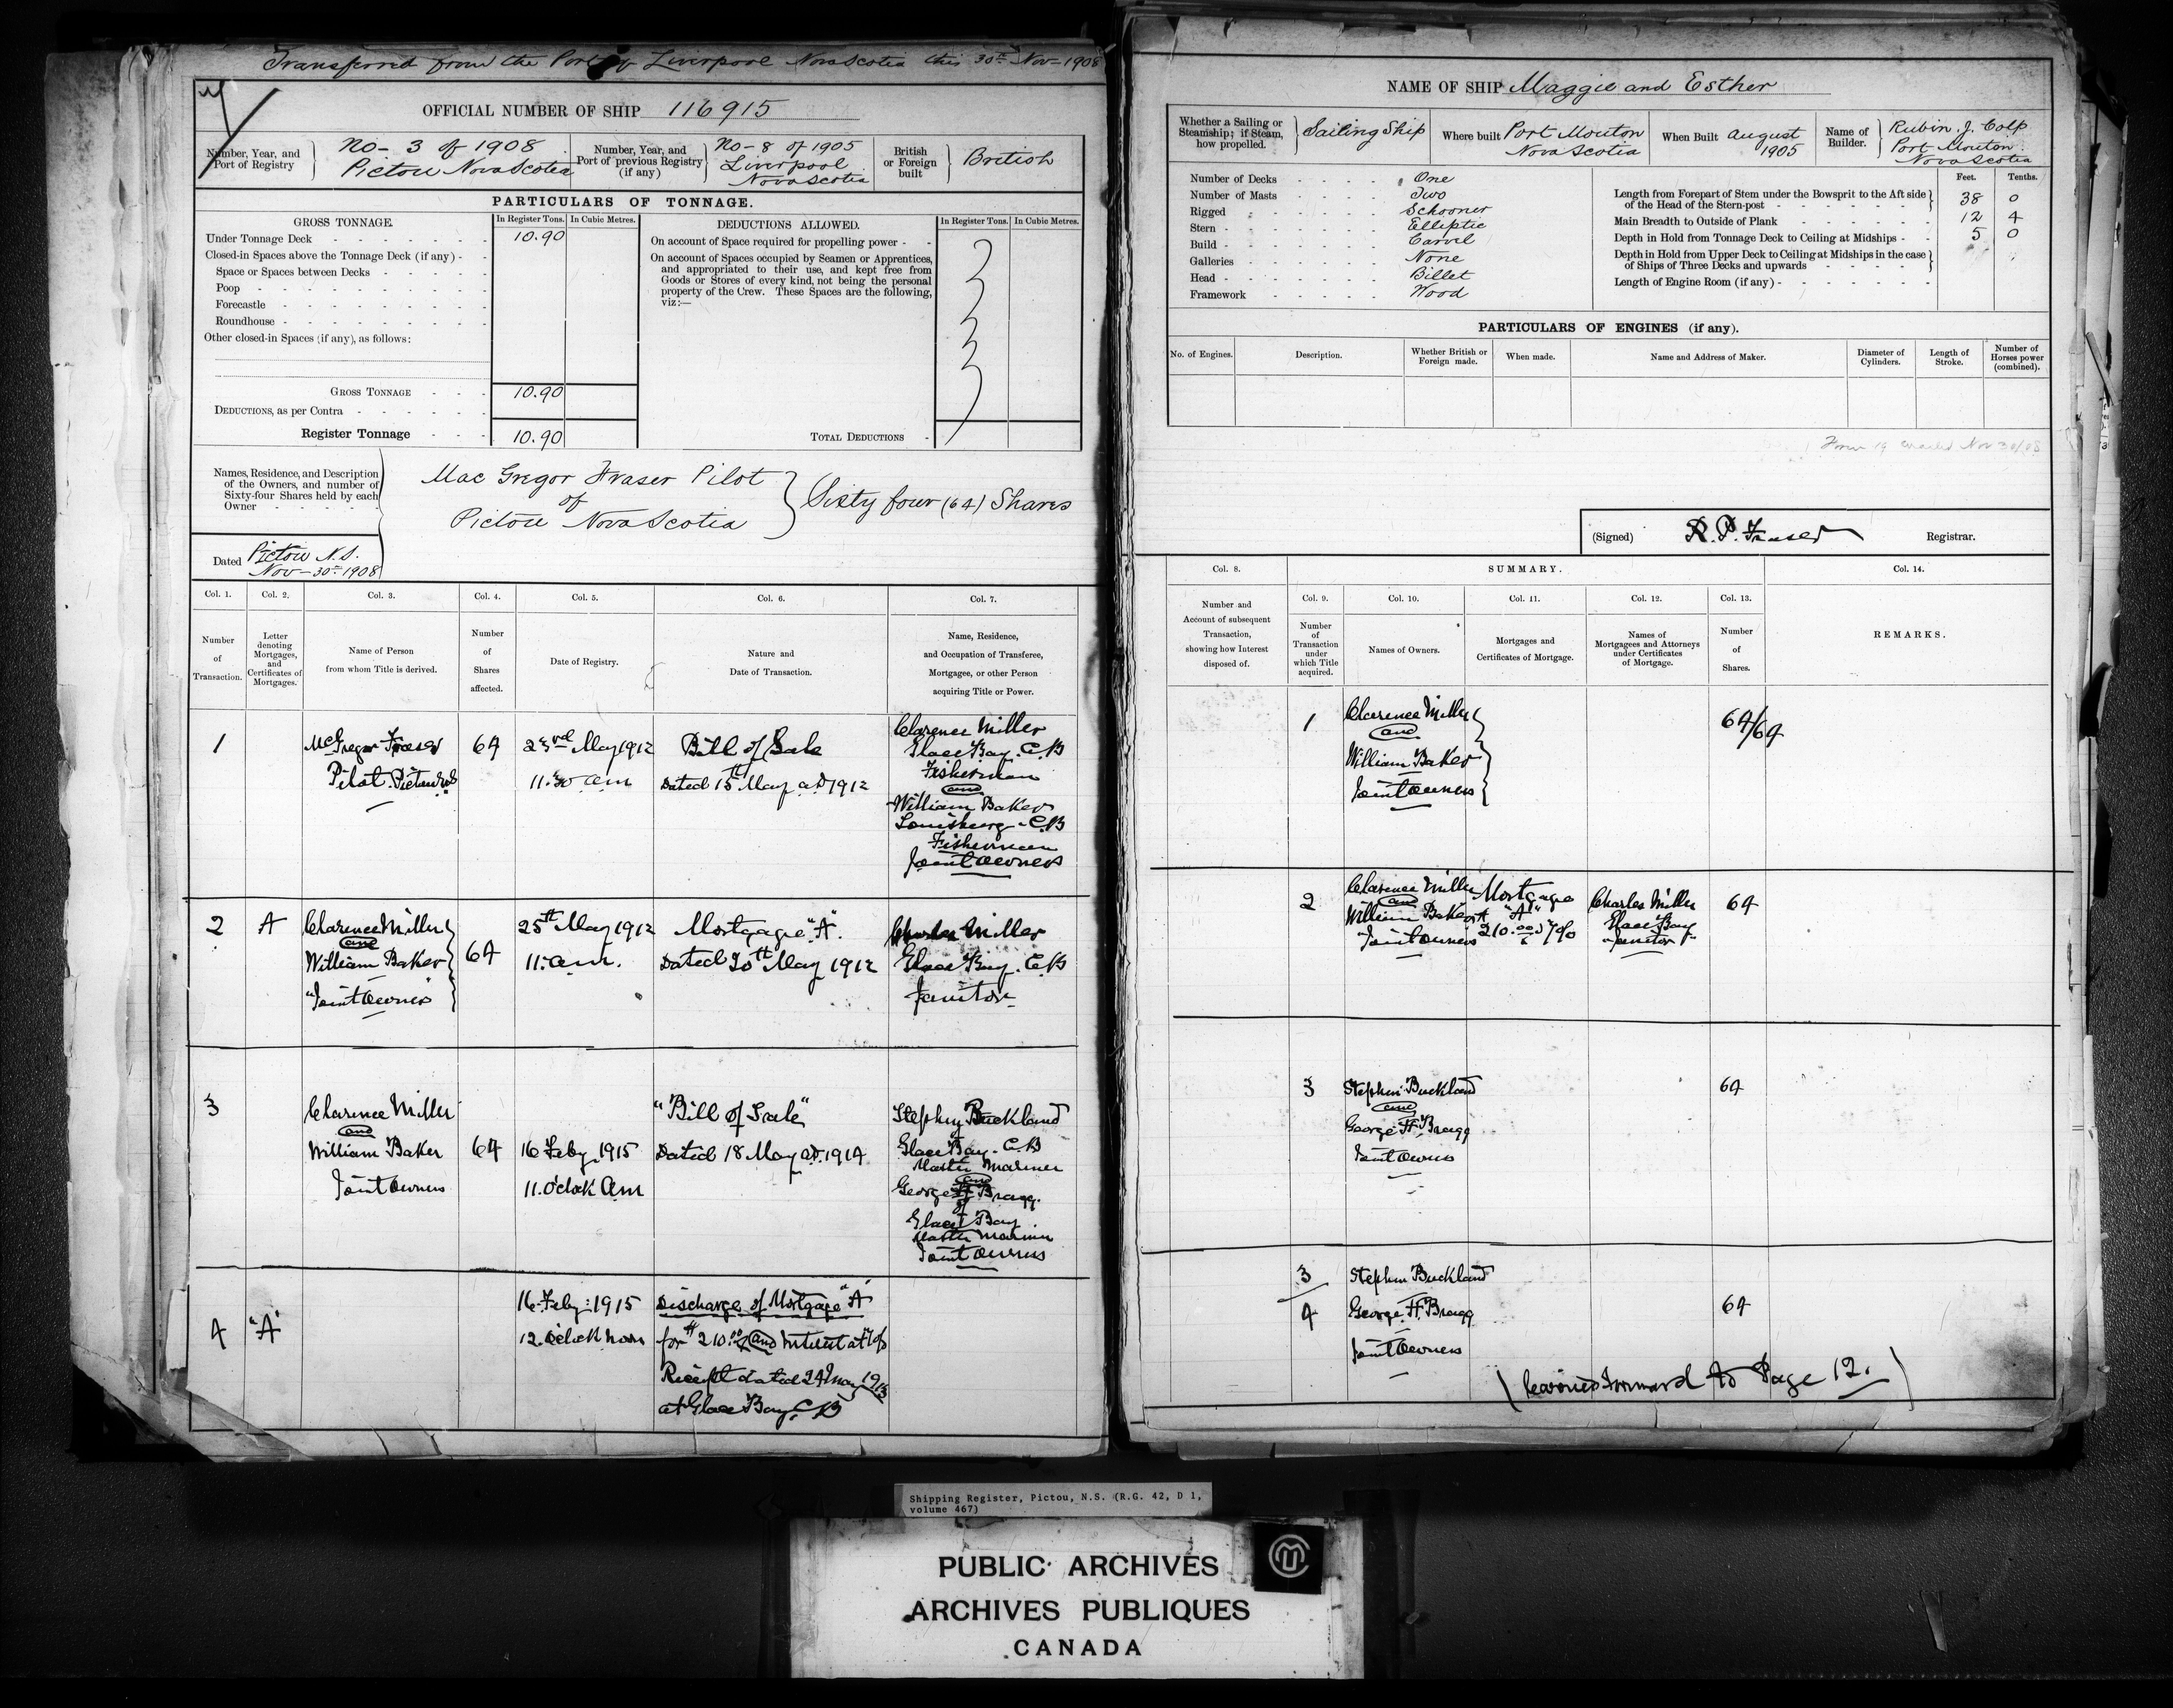 Transferred from the Port of Liverpool Nova Scotia this 30th Nov - 1908
OFFICIAL NUMBER OF SHIP 116915
Number, Year, and Port of Registry
No - 3 of 1908
Pictou Nova Scotia
Number, Year, and Port of previous Registry (if any)
No - 8 of 1905
Liverpool
Nova Scotia
British or Foreign built
British
PARTICULARS OF TONNAGE.
GROSS TONNAGE.
In Register Tons. In Cubic Metres.
Under Tonnage Deck 10.90
Closed-in Spaces above the Tonnage Deck (if any)
Space or Spaces between Decks
Poop
Forecastle
Roundhouse
Other closed-in Spaces (if any), as follows:
GROSS TONNAGE 10.90
DEDUCTIONS, as per Contra
Register Tonnage 10.90
DEDUCTIONS ALLOWED.
In Register Tons. In Cubic Metres.
On account of Space required for propelling power
On account of Spaces occupied by Seamen or Apprentices,
and appropriated to their use, and kept free from
Goods or Stores of every kind, not being the personal
property of the Crew. These Spaces are the following,
viz:—
TOTAL DEDUCTIONS
Names, Residence, and Description
of the Owners, and number of
Sixty-four Shares held by each
Owner
Mac Gregor Fraser Pilot
of
Pictou Nova Scotia
Sixty four (64) Shares
Dated Pictou N.S.
Nov - 30th 1908
Col. 1. Col. 2. Col. 3. Col. 4. Col. 5. Col. 6. Col. 7.
Number of Transaction.
Letter denoting Mortgages, and Certificates of Mortgages.
Name of Person from whom Title is derived.
Number of Shares affected.
Date of Registry.
Nature and Date of Transaction.
Name, Residence, and Occupation of Transferee, Mortgagee, or other Person acquiring Title or Power.
1
McGregor Fraser
Pilot Pictou N.S.
64
23rd May 1912
11.30 am
Bill of Sale
Dated 15th May AD 1912
Clarence Miller
Glace Bay. C.B
Fisherman
and
William Baker
Louisburg - C.B
Fisherman
Joint Owners
2
A
Clarence Miller
and
William Baker
"Joint Owners
64
25th May 1912
11. a.m.
Mortgage "A".
Dated 20th May 1912
Charles Miller
Glace Bay. C.B
Janitor
3
Clarence Miller
and
William Baker
Joint Owners
64
16 Feby. 1915
11. O'clock Am
"Bill of Sale"
Dated 18 May AD. 1914
Stephen Buckland
Glace Bay - C.B
Master Mariner
and
George H Bragg.
of
Glace Bay
Master Mariner
Joint Owners
4
"A"
16. Feby: 1915
12. O'clock noon
Discharge of Mortgage "A"
for $210.00 and interest at 7%
Receipt dated 24 May 1913
at Glace Bay. C.B
NAME OF SHIP Maggie and Esther
Whether a Sailing or Steamship; if Steam, how propelled.
Sailing Ship
Where built Port Mouton
Nova Scotia
When Built August
1905
Name of Builder.
Rubin J. Colp
Port Mouton.
Nova Scotia
Number of Decks One
Number of Masts Two
Rigged Schooner
Stern Elliptic
Build Carvel
Galleries None
Head Billet
Framework Wood
Feet. Tenths.
Length from Forepart of Stem under the Bowsprit to the Aft side
of the Head of the Stern-post 38 0
Main Breadth to Outside of Plank 12 4
Depth in Hold from Tonnage Deck to Ceiling at Midships 5 0
Depth in Hold from Upper Deck to Ceiling at Midships in the case
of Ships of Three Decks and upwards
Length of Engine Room (if any)
PARTICULARS OF ENGINES (if any).
No. of Engines.
Description.
Whether British or Foreign made.
When made.
Name and Address of Maker.
Diameter of Cylinders.
Length of Stroke.
Number of Horses power (combined).
Form 19 Nov 30/08
(Signed) R. P. Fraser Registrar.
Col. 8. SUMMARY. Col. 14.
Col. 9. Col. 10. Col. 11. Col. 12. Col. 13.
Number and Account of subsequent Transaction, showing how Interest disposed of.
Number of Transaction under which Title acquired.
Names of Owners.
Mortgages and Certificates of Mortgage.
Names of Mortgagees and Attorneys under Certificates of Mortgage.
Number of Shares.
REMARKS.
1
Clarence Miller
and
William Baker
Joint Owners
64/64
2
Clarence Miller
and
William Baker
"Joint Owners"
Mortgage
"A"
210.00 7%
Charles Miller
Glace Bay
Janitor
64
3
Stephen Buckland
and
George H Bragg
Joint Owners
64
3
4
Stephen Buckland
George. H. Bragg
Joint Owners
64
(Carried Forward to Page 12.)
Shipping Register, Pictou, N.S. (R.G. 42, D 1,
volume 467)
PUBLIC ARCHIVES
ARCHIVES PUBLIQUES
CANADA